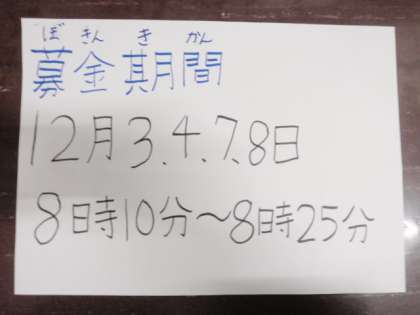 ぼ きん き かん
募金期間
12月3、4、7、8日
8時10分〜8時25分